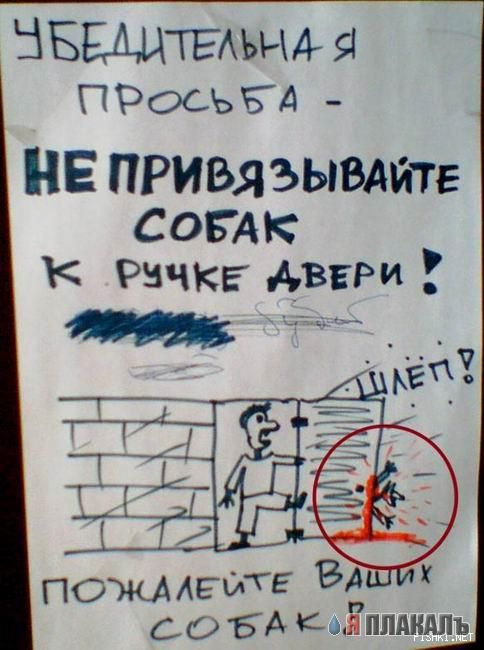 УБЕДИТЕЛЬНАЯ
ПРОСЬБА -
НЕ ПРИВЯЗЫВАЙТЕ
СОБАК
К РУЧКЕ ДВЕРИ!
ШЛЁП!
ПОЖАЛЕЙТЕ ВАШИХ
СОБАК!
Я ПЛАКАЛЪ
FISHKI.NET